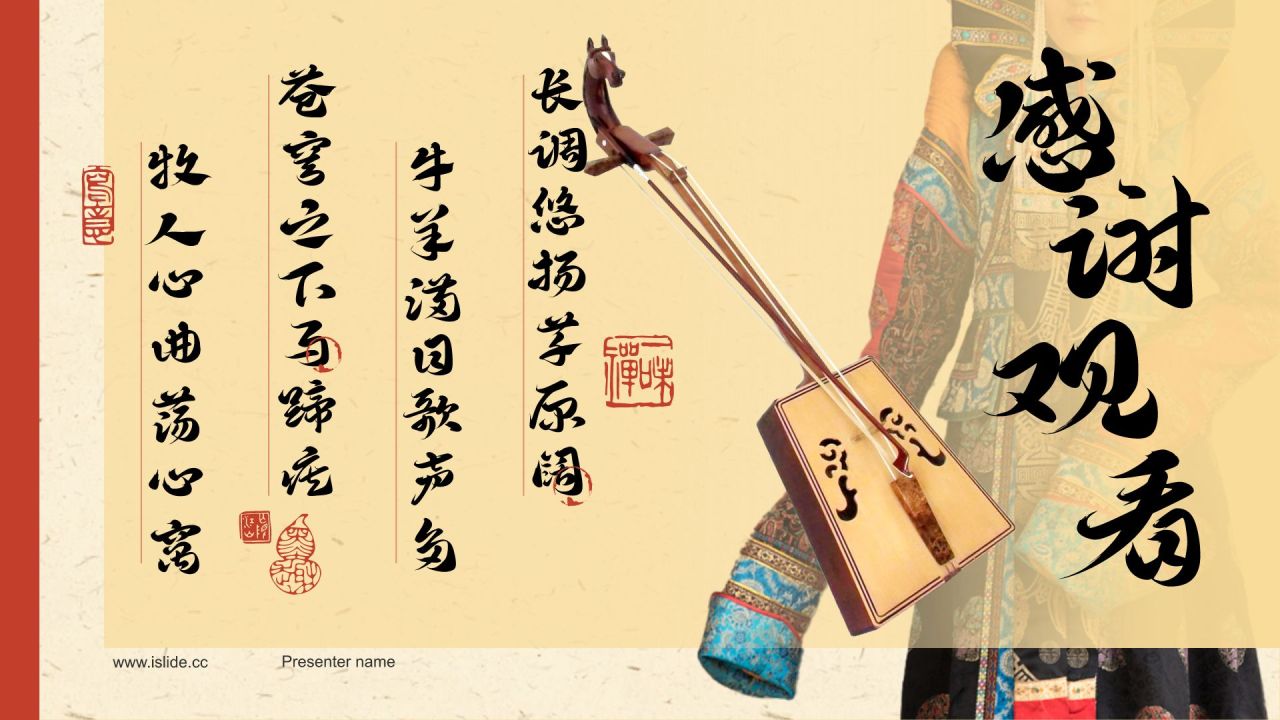 感谢观看
长调悠扬草原阔
牛羊满目歌声多
苍穹之下马蹄疾
牧人心曲荡心窝
一味禪
www.islide.cc
Presenter name